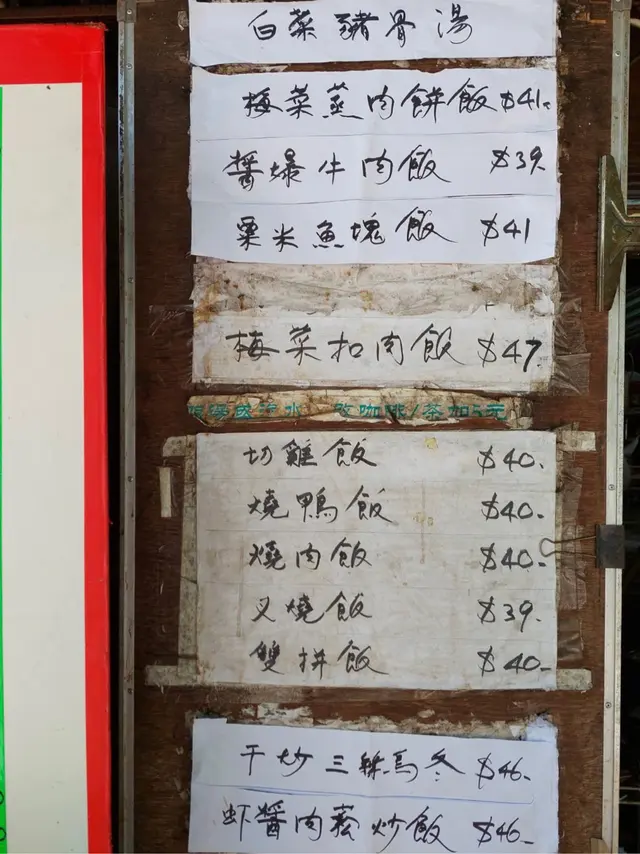 白菜豬骨湯
梅菜蒸肉餅飯 $41.
醬爆牛肉飯 $39.
粟米魚塊飯 $41
梅菜扣肉飯 $47.
汽水 改咖啡/茶加元
切雞飯 $40.
燒鴨飯 $40.
燒肉飯 $40.
叉燒飯 $39.
雙拼飯 $40.
干炒三絲烏冬 $46.
虾醬肉菘炒飯 $46.